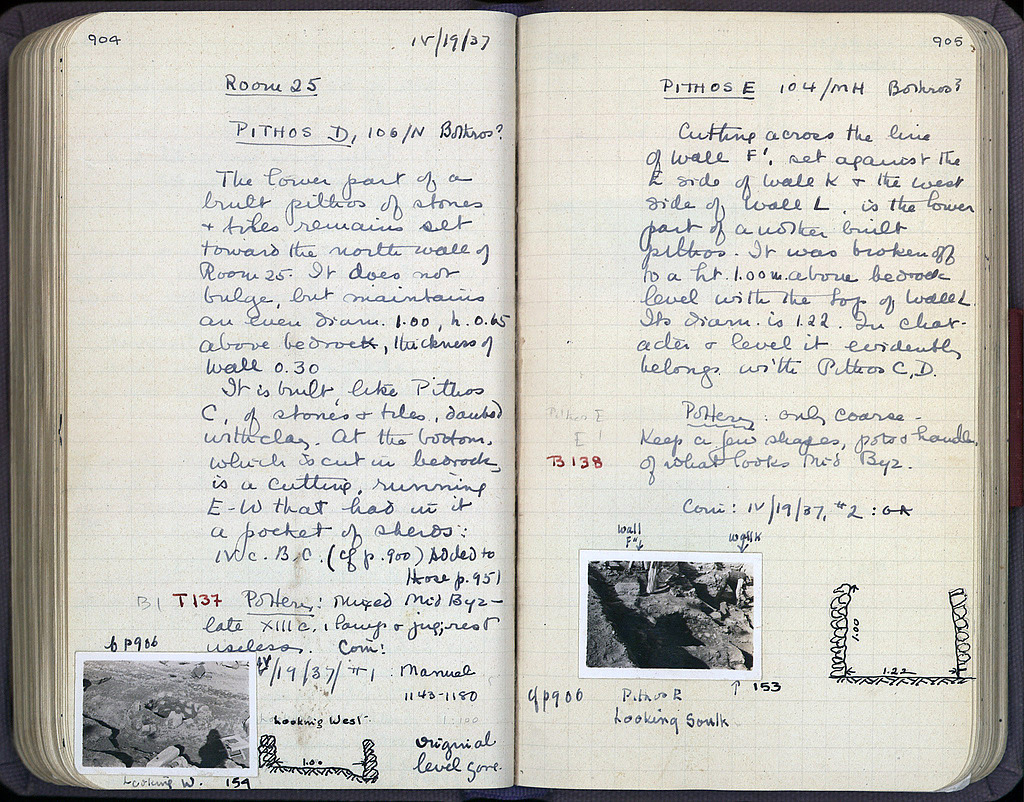 904
IV/19/37
Room 25
PITHOS D, 106/N Bothros?
The lower part of a
built pithos of stones
+ tiles remains set
toward the north wall of
Room 25. It does not
bulge, but maintains
an even diam. 1.00, h. 0.65
above bedrock, thickness of
wall 0.30
It is built, like Pithos
C, of stones + tiles, daubed
with clay. At the bottom,
which is cut in bedrock,
is a cutting, running
E-W that had in it
a pocket of sherds:
IV c. B.C. (cf p. 900) Added to
those p. 951
B1 T137 Pottery: mixed Mid Byz-
late XIII c., 1 lamp + jug, rest
useless. Coin:
IV/19/37/ #1 Manuel
1143-1180
cf p906
Looking West
1.00
original
level gone.
Looking W. 154
905
PITHOS E 104/MH Bothros?
Cutting across the line
of wall F', set against the
E side of wall K + the west
side of wall L, is the lower
part of another built
pithos. It was broken off
to a ht. 1.00 m. above bedrock
level with the top of wall L.
Its diam. is 1.22. In char-
acter + level it evidently
belongs with Pithos C, D.
Pithos E
E1
B138
Pottery: only coarse-
Keep a few shapes, pots + handles
of what looks Mid Byz.
Coin: IV/19/37, #2: 
wall
F"
wall K
1.00
1.22
cf p906
Pithos E
↑ 153
Looking South